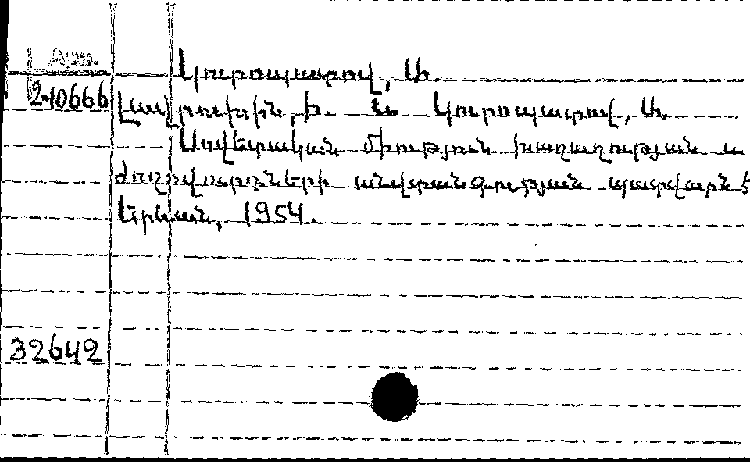 Կուրոպատով, Ա.
2-10666
Լավրուխին, Ի. և Կուրոպատով, Ա.
Սովետական միություն խաղաղության և
ժողովուրդների անվտանգության պատվարն է
Երևան, 1954.
32642